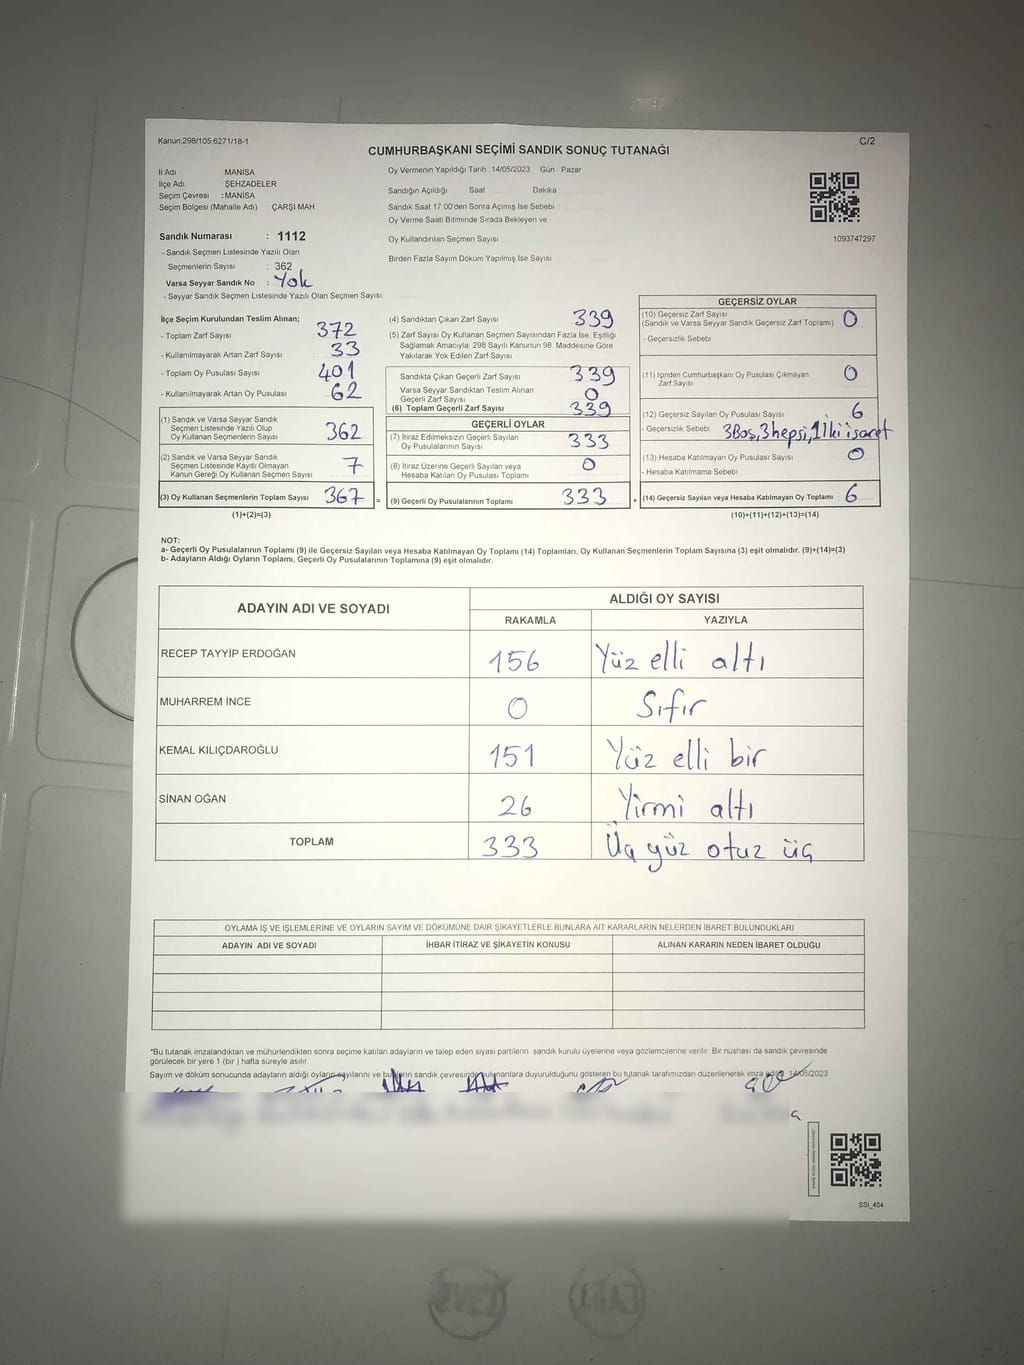 Kanun:298/105;6271/18-1
C/2
CUMHURBAŞKANI SEÇİMİ SANDIK SONUÇ TUTANAĞI
İl Adı : MANİSA
İlçe Adı : ŞEHZADELER
Seçim Çevresi : MANİSA
Seçim Bölgesi (Mahalle Adı) ÇARŞI MAH.
Sandık Numarası : 1112
- Sandık Seçmen Listesinde Yazılı Olan
Seçmenlerin Sayısı : 362
Varsa Seyyar Sandık No : Yok
- Seyyar Sandık Seçmen Listesinde Yazılı Olan Seçmen Sayısı
Oy Vermenin Yapıldığı Tarih 14/05/2023 Gün Pazar
Sandığın Açıldığı Saat Dakika
Sandık Saat 17:00'den Sonra Açılmış İse Sebebi
Oy Verme Saati Bitiminde Sırada Bekleyen ve
Oy Kullandırılan Seçmen Sayısı
Birden Fazla Sayım Döküm Yapılmış İse Sayısı
1093747297
İlçe Seçim Kurulundan Teslim Alınan;
- Toplam Zarf Sayısı 372
- Kullanılmayarak Artan Zarf Sayısı 33
- Toplam Oy Pusulası Sayısı 401
- Kullanılmayarak Artan Oy Pusulası 62
(1) Sandık ve Varsa Seyyar Sandık
Seçmen Listesinde Yazılı Olup
Oy Kullanan Seçmenlerin Sayısı 362
(2) Sandık ve Varsa Seyyar Sandık
Seçmen Listesinde Kayıtlı Olmayan
Kanun Gereği Oy Kullanan Seçmen Sayısı 7
(3) Oy Kullanan Seçmenlerin Toplam Sayısı 367 =
(1)+(2)=(3)
(4) Sandıktan Çıkan Zarf Sayısı 339
(5) Zarf Sayısı Oy Kullanan Seçmen Sayısından Fazla İse, Eşitliği
Sağlamak Amacıyla; 298 Sayılı Kanunun 98. Maddesine Göre
Yakılarak Yok Edilen Zarf Sayısı
Sandıkta Çıkan Geçerli Zarf Sayısı 339
Varsa Seyyar Sandıktan Teslim Alınan
Geçerli Zarf Sayısı 0
(6) Toplam Geçerli Zarf Sayısı 339
GEÇERLİ OYLAR
(7) İtiraz Edilmeksizin Geçerli Sayılan
Oy Pusulalarının Sayısı 333
(8) İtiraz Üzerine Geçerli Sayılan veya
Hesaba Katılan Oy Pusulası Toplamı 0
(9) Geçerli Oy Pusulalarının Toplamı 333 +
GEÇERSİZ OYLAR
(10) Geçersiz Zarf Sayısı
(Sandık ve Varsa Seyyar Sandık Geçersiz Zarf Toplamı) 0
- Geçersizlik Sebebi
(11) İçinden Cumhurbaşkanı Oy Pusulası Çıkmayan
Zarf Sayısı 0
(12) Geçersiz Sayılan Oy Pusulası Sayısı 6
- Geçersizlik Sebebi 3Boş,3hepsi,1İki işaret
(13) Hesaba Katılmayan Oy Pusulası Sayısı 0
- Hesaba Katılmama Sebebi
(14) Geçersiz Sayılan veya Hesaba Katılmayan Oy Toplamı 6
(10)+(11)+(12)+(13)=(14)
NOT:
a- Geçerli Oy Pusulalarının Toplamı (9) ile Geçersiz Sayılan veya Hesaba Katılmayan Oy Toplamı (14) Toplamları, Oy Kullanan Seçmenlerin Toplam Sayısına (3) eşit olmalıdır. (9)+(14)=(3)
b- Adayların Aldığı Oyların Toplamı, Geçerli Oy Pusulalarının Toplamına (9) eşit olmalıdır.
ADAYIN ADI VE SOYADI
ALDIĞI OY SAYISI
RAKAMLA YAZIYLA
RECEP TAYYİP ERDOĞAN 156 Yüz elli altı
MUHARREM İNCE 0 Sıfır
KEMAL KILIÇDAROĞLU 151 Yüz elli bir
SİNAN OĞAN 26 Yirmi altı
TOPLAM 333 Üç yüz otuz üç
OYLAMA İŞ VE İŞLEMLERİNE VE OYLARIN SAYIM VE DÖKÜMÜNE DAİR ŞİKAYETLERLE BUNLARA AİT KARARLARIN NELERDEN İBARET BULUNDUKLARI
ADAYIN ADI VE SOYADI İHBAR İTİRAZ VE ŞİKAYETİN KONUSU ALINAN KARARIN NEDEN İBARET OLDUĞU
*Bu tutanak imzalandıktan ve mühürlendikten sonra seçime katılan adayların ve talep eden siyasi partilerin sandık kurulu üyelerine veya gözlemcilerine verilir. Bir nüshası da sandık çevresinde
görülecek bir yere 1 (bir) hafta süreyle asılır.
Sayım ve döküm sonucunda adayların aldığı oyların sayılarını ve bunların sandık çevresinde bulunanlara duyurulduğunu gösteren bu tutanak tarafımızdan düzenlenerek imza edildi. 14/05/2023
SSI_404